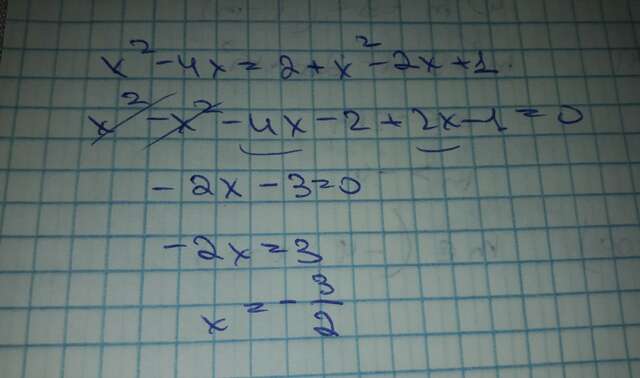 x² - 4x = 2 + x² - 2x + 1
x² - x² - 4x - 2 + 2x - 1 = 0
- 2x - 3 = 0
- 2x = 3
x = - 3/2